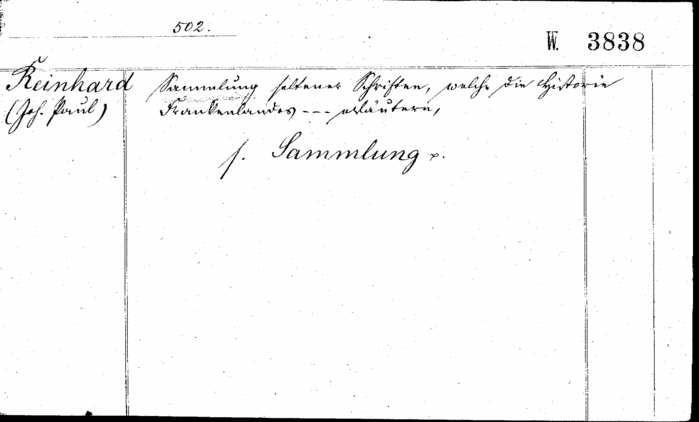 502.
W. 3838
Reinhard
(Joh. Paul)
Sammlung seltener Schriften, welche die Historie
Frankenlandes --- erläutern,
s. Sammlung p.